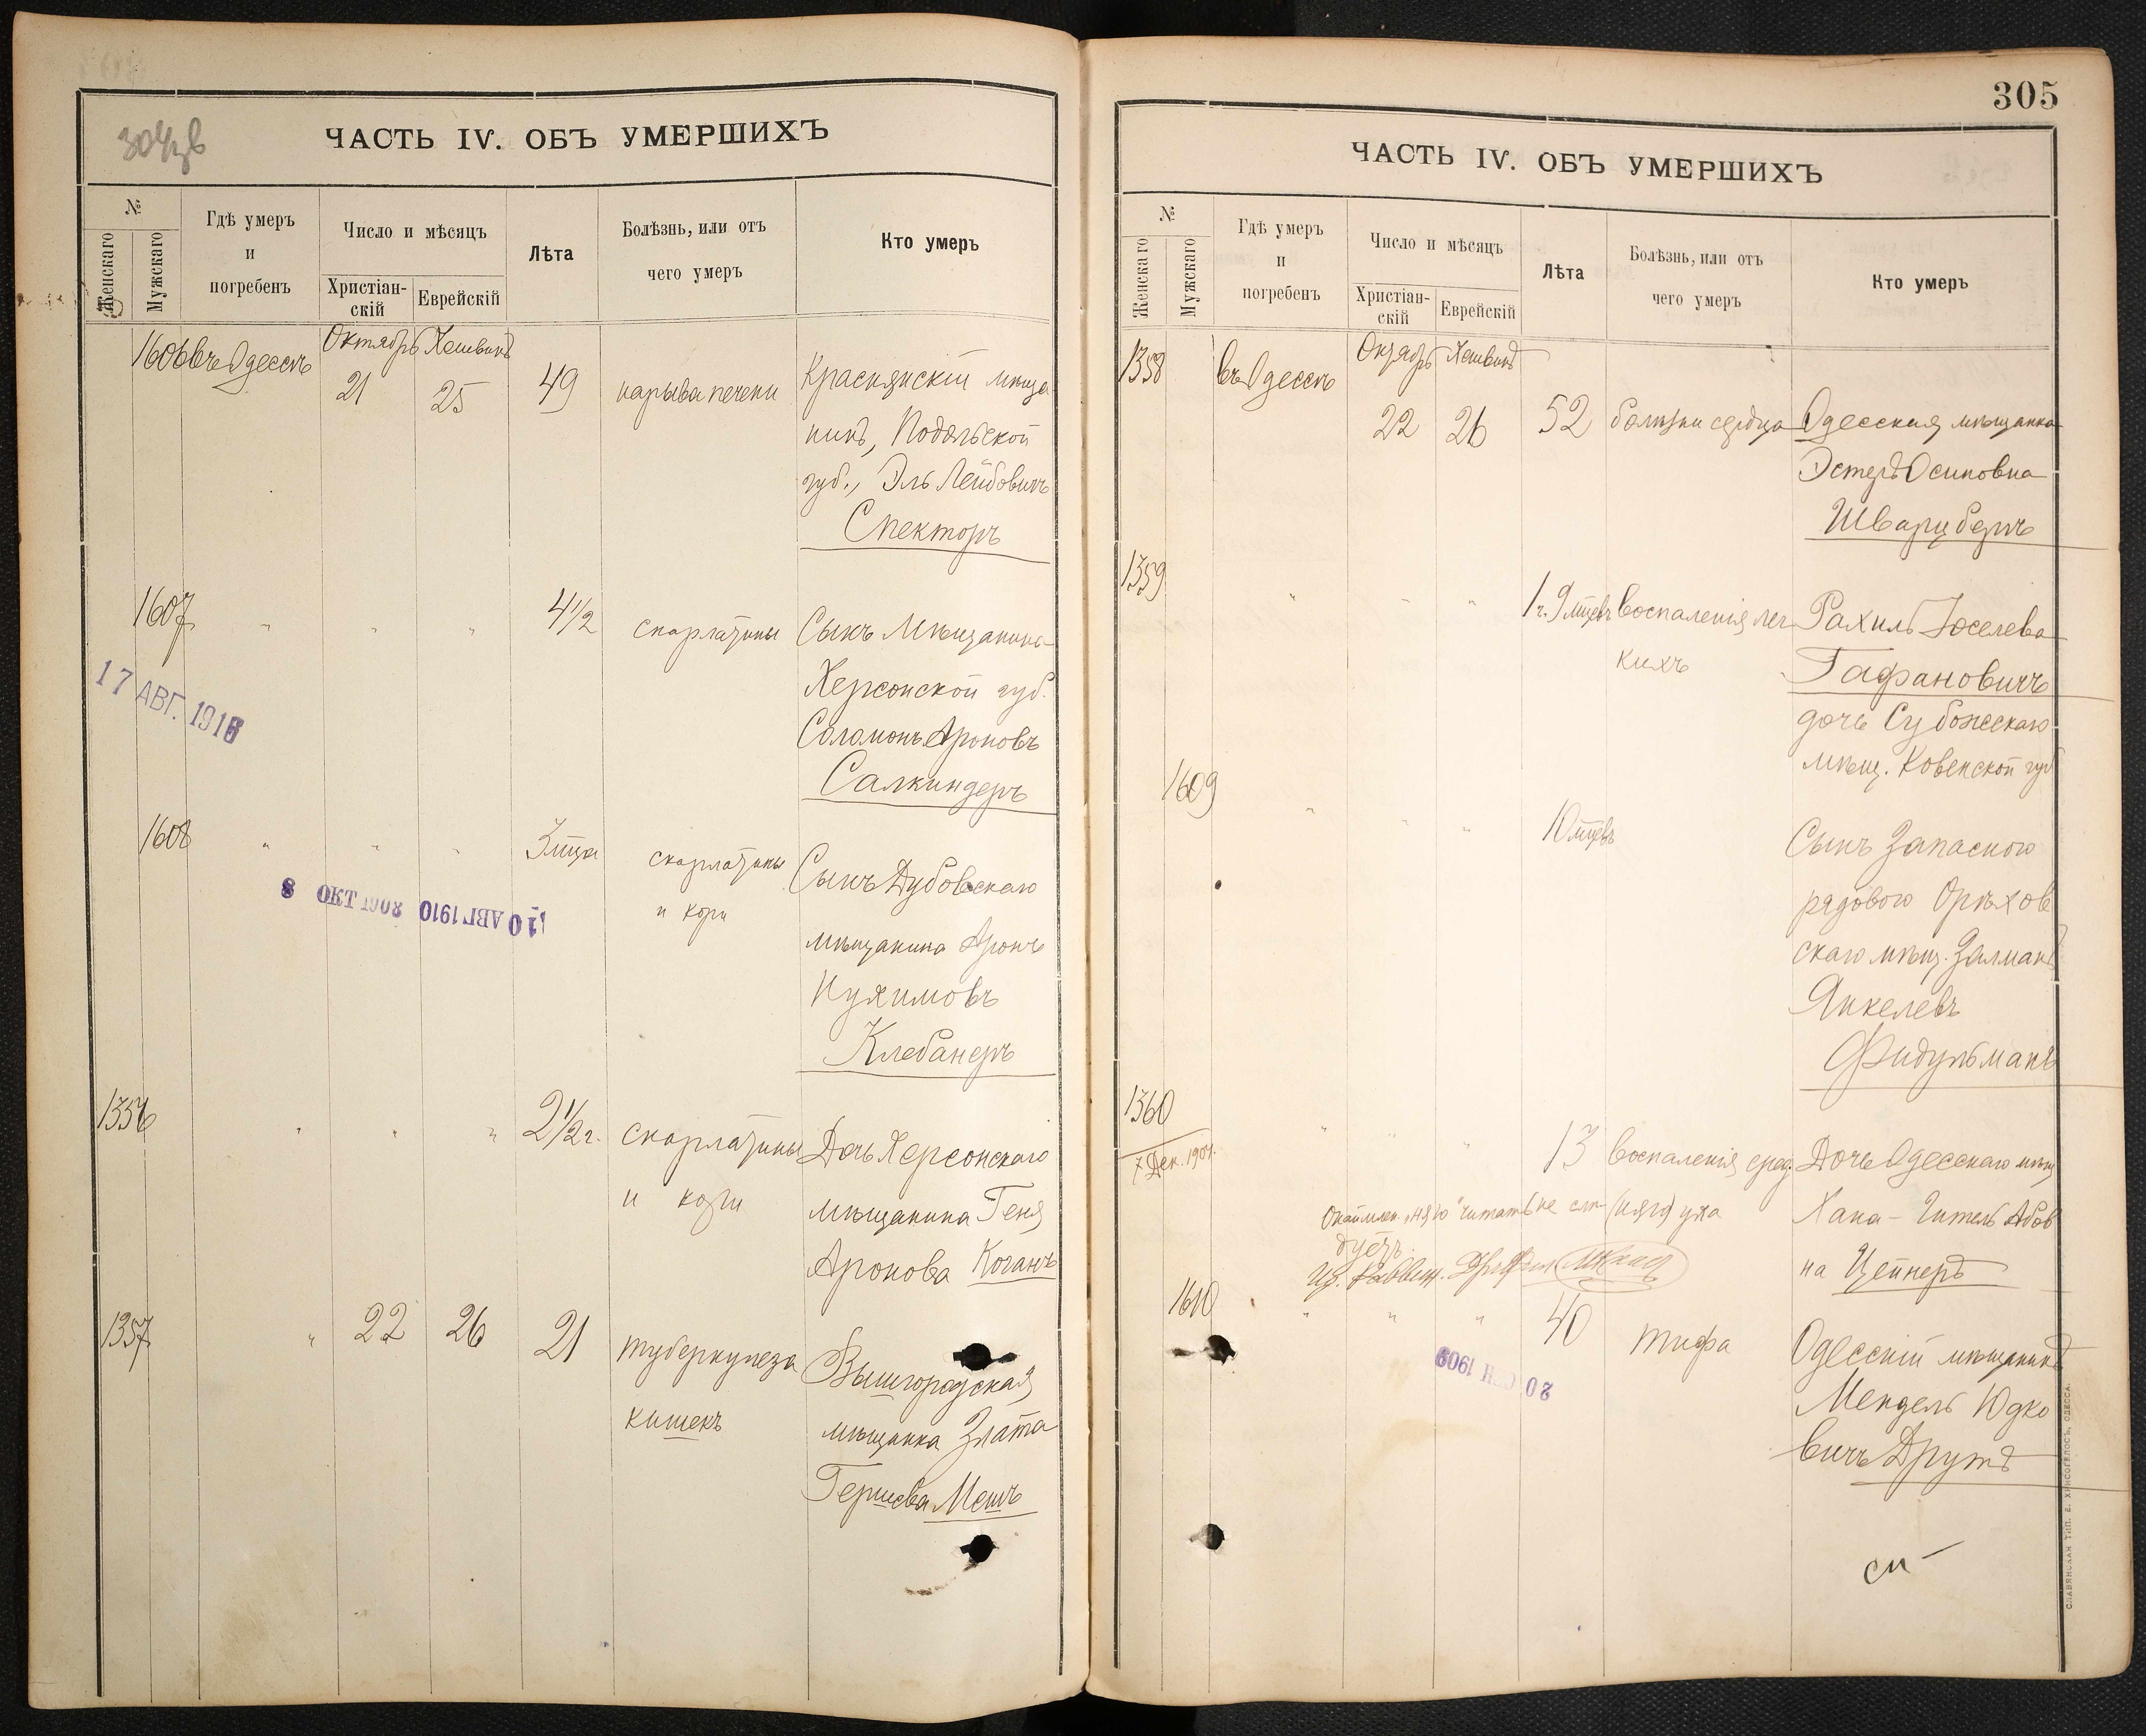 304
ЧАСТЬ IV. ОБЪ УМЕРШИХЪ
№
Женскаго
Мужскаго
Гдѣ умеръ
и
погребенъ
Число и мѣсяцъ
Христіан-
скій
Еврейскій
Лѣта
Болѣзнь, или отъ
чего умеръ
Кто умеръ
1606 въ Одессѣ Октябрь Хешванъ
21 25 49 нарыва печени Краснянскій мѣща
нинъ, Подольской
губ., Эль Лейбовичъ
Спекторъ
1607 " " " 4 1/2 скарлатины Сынъ мѣщанина
Херсонской губ.
Соломонъ Ароновъ
Салкиндеръ
17 АВГ. 1916
1608 " " " 3 мѣца скарлатины Сынъ Дубовскаго
и кори
мѣщанина Аронъ
Нухимовъ
Клебанеръ
8 ОКТ 1908
10 АВГ 1910
1356 " " " 2 1/2 г. скарлатины Дочь Херсонскаго
и кори мѣщанина Геня
Аронова Коганъ
1357 " 22 26 21 туберкулеза Вышгородская
кишекъ мѣщанка Злата
Гершева Мешъ
305
ЧАСТЬ IV. ОБЪ УМЕРШИХЪ
№
Женскаго
Мужскаго
Гдѣ умеръ
и
погребенъ
Число и мѣсяцъ
Христіан-
скій
Еврейскій
Лѣта
Болѣзнь, или отъ
чего умеръ
Кто умеръ
1358 въ Одессѣ Октябрь Хешванъ
22 26 52 болѣзни сердца Одесская мѣщанка
Эстеръ Осиповна
Шварцбергъ
1359 " " " 1 г. 9 мѣцевъ воспаленія лег Рахиль Іоселева
кихъ Гафановичъ
дочь
мѣщ. Ковенской губ
1609 " " " 10 мѣцевъ
Сынъ Запасного
рядового Орѣхов
скаго мѣщ. Залманъ
Янкелевъ
Фидульманъ
1360 " " " 13 воспаленія сред. Дочь Одесскаго мѣщ
7 Дек. 1907.
няго читать не слѣ (няго) уха
дуетъ.
Хана - Гитель Абов
на Цейнеръ
1610 " " " 40 тифа Одесскій мѣщанинъ
Мендель Юдко
вичъ Друтъ
20 СЕН 1909
СЛАВЯНСКАЯ ТИП. Е. ХРИСОГЕЛОСЪ, ОДЕССА.